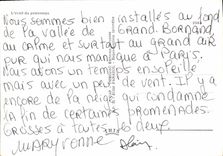 L'éveil du printemps
Nous sommes bien installés au fond
de la vallée de GRAND. BORNAND
au calme et surtout au grand air
pur qui nous manque à PARIS.
Nous avons un temps ensoleillé
mais avec un peu de vent. Il y a
encore de la neige qui condamne
la fin de certaines promenades.
GROSSES à toutes les deux.
MARYVONNE Alain